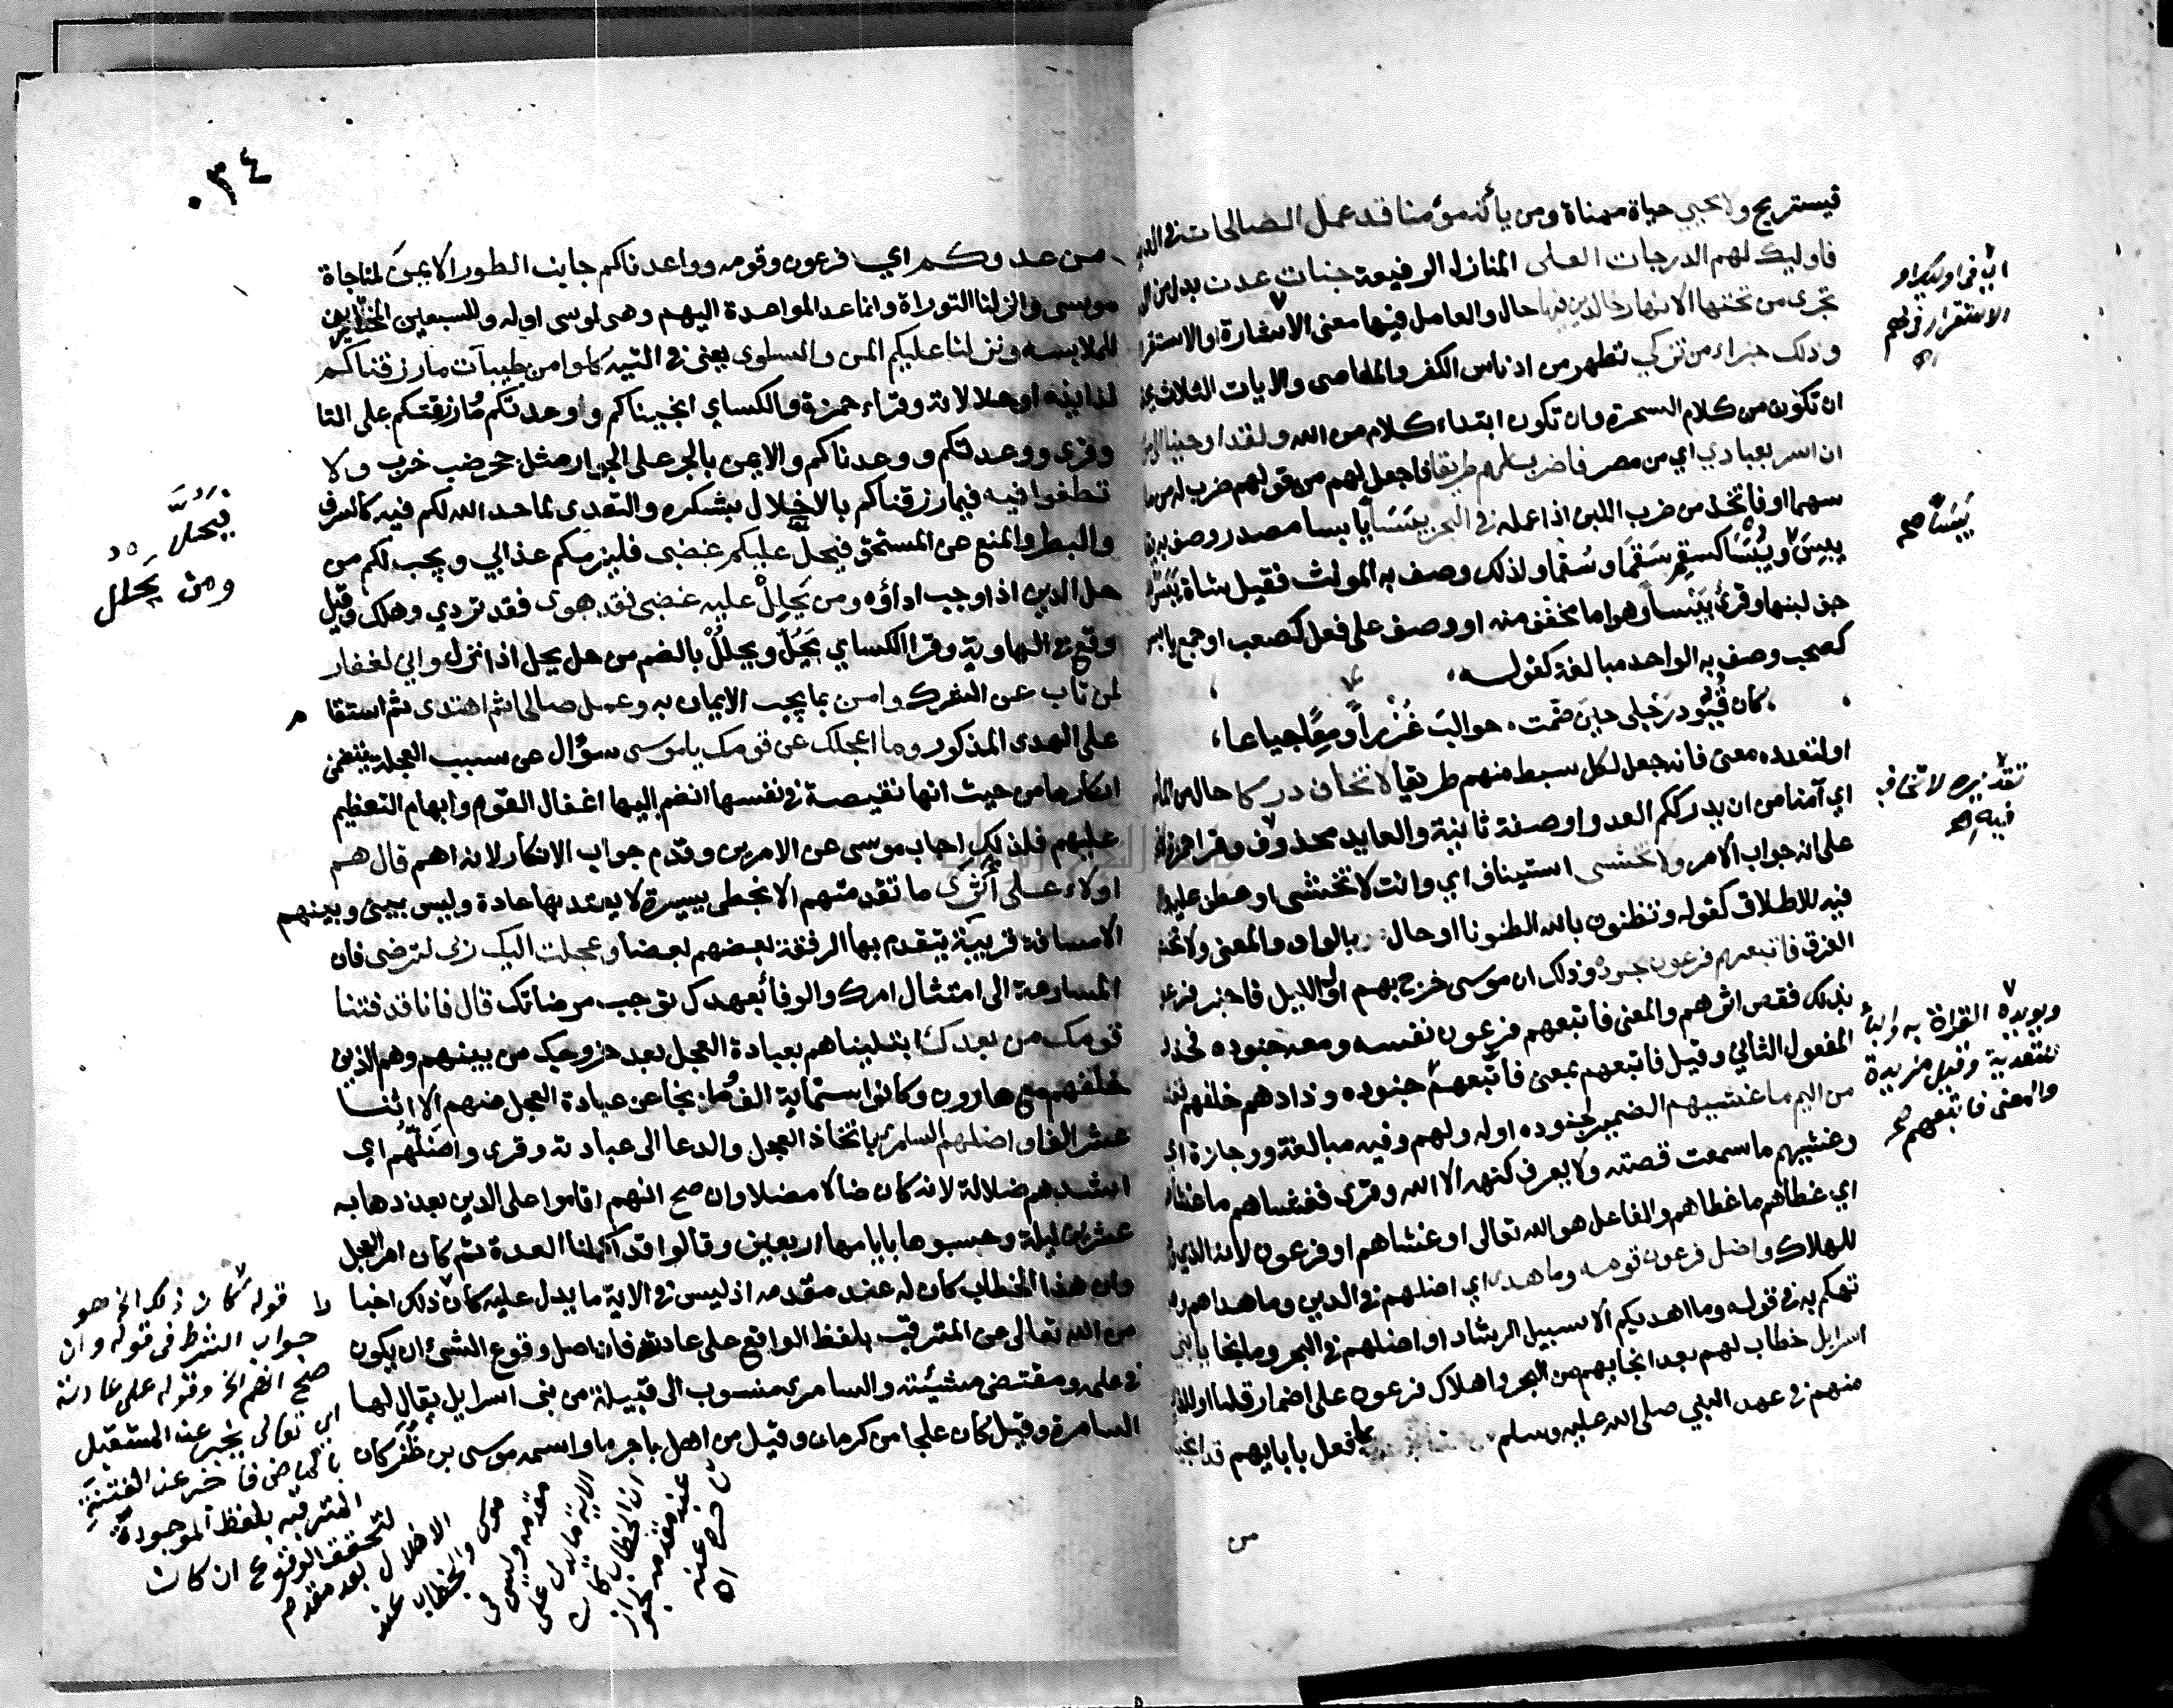 فيستريح ولا يحيى حياة مهناة ومن يأته مؤمنا قد عمل الصالحات في الدنيا
فاوليك لهم الدرجات العلى المنازل الرفيعة جنات عدت بدل من ال
تجرى من تحتها الانهار خالدين فيها حال والعامل فيها معنى الاشارة او الاستقر
وذلك جزاء من تزكى تطهر من ادناس الكفر والمعاصى والايات الثلاث
ان تكون من كلام السحرة وان تكون ابتداء كلام من الله ولقد اوحينا الى
ان اسر بعبادي اي من مصر فاضرب لهم طريقا فاجعل لهم من قولهم ضرب له من ما
سهما او فاتخذ من ضرب اللبن اذا عمله في البحر يبسا يابسا مصدر وصف به
يبس ويبسا كسقم سقما وسقما ولذلك وصف به المونث فقيل شاة يبس
جف لبنها وقرئ يبسا وهو اما مخفف منه او وصف على فعل كصعب او جمع يابس
كصحب وصف به الواحد مبالغة كقوله
كان قيود رحلى حين ضمت، حوالب غزرا ومعا جياعا،
او لتعدده معنى فانه جعل لكل سبط منهم طريقا لا تخاف دركا حال من
اي آمنا من ان يدرككم العدو او صفة ثانية والعايد محذوف وقرا حمزة
على انه جواب الامر ولا تخشى استيناف اي وانت لا تخشى او عطف عليه
فيه للاطلاق كقوله وتظنون بالله الظنونا او حال بالواو والمعنى ولا تخش
الغرق فاتبعهم فرعون بجنوده وذلك ان موسى خرج بهم اول الليل فاخبر فرعو
بذلك فقص اثرهم والمعنى فاتبعهم فرعون نفسه ومعه جنوده فحذف
المفعول الثاني وقيل فاتبعهم بمعنى فاتبعهم جنوده وذادهم خلفهم فغشيهم
من اليم ما غشيهم الضمير لجنوده اوله ولهم وفيه مبالغة ووجازة اي
وغشيهم ما سمعت قصته ولا يعرف كنهه الا الله وقرى فغشاهم ما غشاهم
اي غطاهم ما غطاهم والفاعل هو الله تعالى او غشاهم او فرعون لانه الذي
للهلاك واضل فرعون قومه وما هدى اي اضلهم في الدين وما هداهم وهو
تهكم به في قوله وما اهديكم الا سبيل الرشاد او اضلهم في البحر وما نجا يا بنى
اسرايل خطاب لهم بعد انجايهم من البحر واهلاك فرعون على اضمار قلنا او للذين
منهم في عهد النبي صلى الله عليه وسلم بما فعل بابايهم قد انجينا
من
اي في اوليك او
الاستقرار في لهم
اه
يبسا صح
تقديره لا تخاف
فيه اه
ويويده القراة به والباء
للتعدية وقيل مزيدة
والمعنى فاتبعهم صح
٠٣٤
من عدوكم اي فرعون وقومه وواعدناكم جانب الطور الايمن لمناجاة
موسى وانزلنا التوراة وانما عد المواعدة اليهم وهى لموسى اوله وللسبعين المختارين
للملابسه ونزلنا عليكم المن والسلوى يعنى في التيه كلوا من طيبات ما رزقناكم
لذايذه او حلالاته وقراء حمزة والكساي انجيتكم واوعدتكم ما رزقتكم على التا
وقرى ووعدتكم ووعدناكم والايمن بالجر على الجوار مثل جحر ضب خرب ولا
تطغوا فيه فيما رزقناكم بالاخلال بشكره والتعدى لما حد الله لكم فيه كالسرف
والبطر والمنع عن المستحق فيحل عليكم غضبى فيلزمكم عذابي ويجب لكم من
حل الدين اذا وجب اداؤه ومن يحلل عليه غضبى فقد هوى فقد تردي وهلك وقيل
وقع في الهاوية وقرا الكساي يحل ويحلل بالضم من حل يحل اذا نزل واني لغفار
لمن تاب عن الشرك وامن بما يجب الايمان به وعمل صالحا ثم اهتدى ثم استقا م
على الهدى المذكور وما اعجلك عن قومك يا موسى سؤال عن سبب العجلة يتضمن
انكارها من حيث انها نقيصة في نفسها انضم اليها اغفال القوم وابهام التعظيم
عليهم فلذلك اجاب موسى عن الامرين وقدم جواب الانكار لانه اهم قال هم
اولاء على أثرى ما تقدمتهم الا بخطى يسيرة لا يعتد بها عادة وليس بينى وبينهم
الا مسافة قريبة يتقدم بها الرفقة بعضهم بعضا وعجلت اليك رب لترضى فان
المسارعة الى امتثال امرك والوفا بعهدك توجب مرضاتك قال فانا قد فتنا
قومك من بعدك ابتليناهم بعبادة العجل بعد خروجك من بينهم وهم الذين
خلفهم مع هارون وكانوا ستماية الف ما نجا عن عبادة العجل منهم الا اثنا
عشر الفا واضلهم السامرى باتخاذ العجل والدعا الى عبادته وقرى واضلهم اي
اشدهم ضلالة لانه كان ضالا مضلا وان صح انهم اقاموا على الدين بعد ذهابه
عشرين ليلة وحسبوها بايامها اربعين وقالوا قد اكملنا العدة ثم كان امر العجل
وان هذا الخطاب كان له عند مقدمه اذ ليس في الاية ما يدل عليه كان ذلك اخبا را
من الله تعالى عن المترقب بلفظ الواقع على عادته فان اصل وقوع الشئ ان يكون
في علمه ومقتضى مشيئته والسامرى منسوب الى قبيلة من بنى اسرايل يقال لها
السامرة وقيل كان علجا من كرمان وقيل من اهل باجرما واسمه موسى بن ظفر كان
فيحل
ومن يحلل
قوله كان ذلك الخ هو
جواب الشرط فى قوله وان
صح انهم الخ وقوله على عادته
اى تعالى يخبر عن المستقبل
بالماضى فاخبر عن الفتنة
المترقبه بلفظ الموجودة
لتحقق الوقوع ان كان
الاضلال بعد مقدم
موسى والخطاب عند
مقدمه وليس فى
الاية ما يدل على
ان الخطاب كان
عند مقدمه
اه